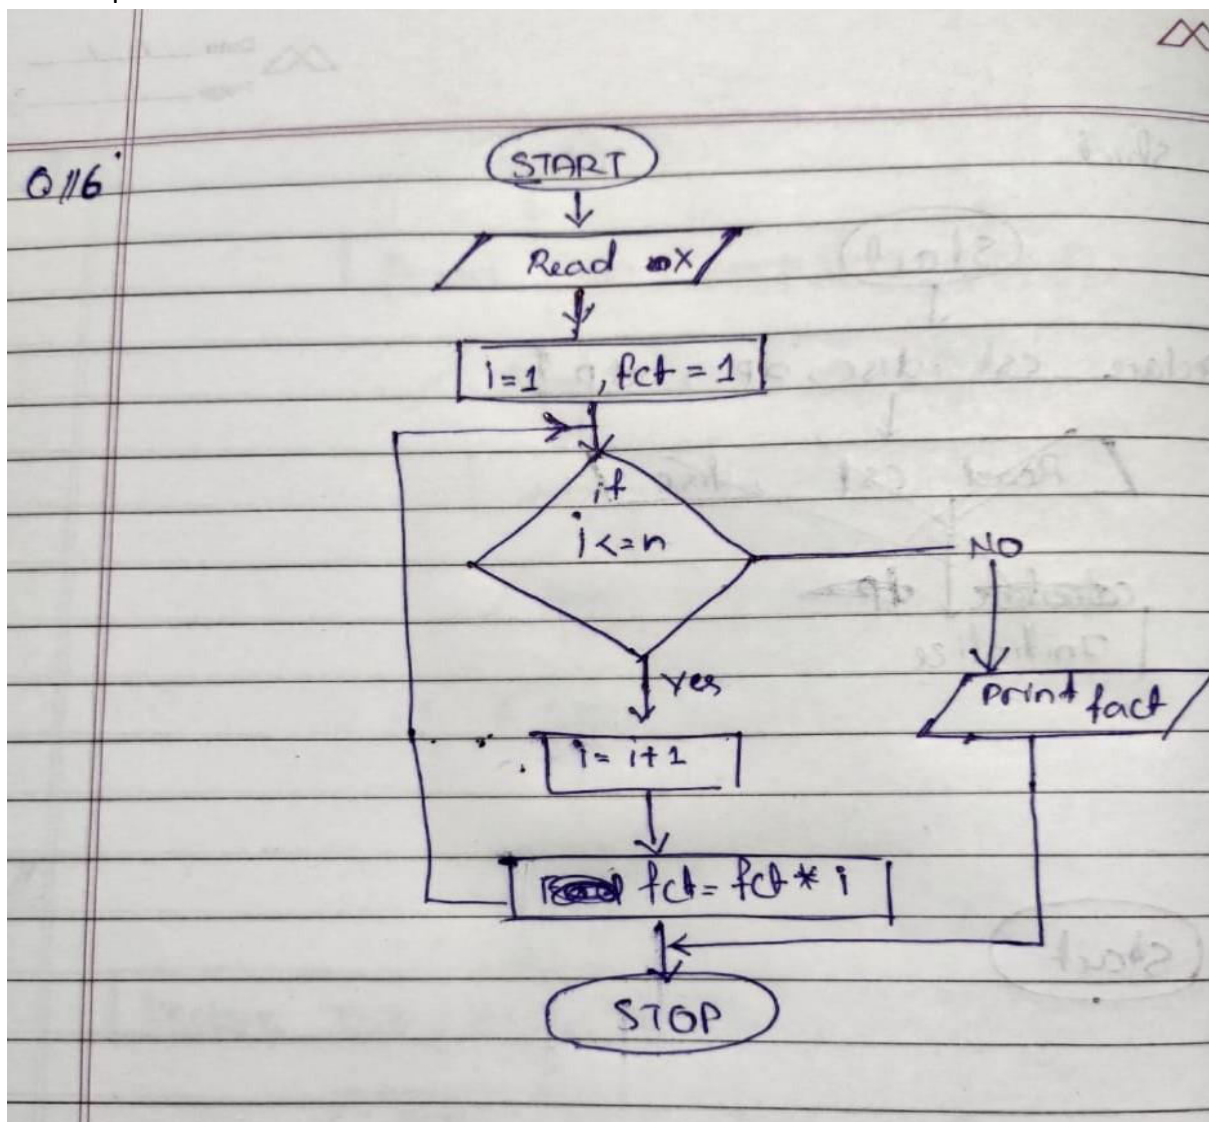 Q116
START
Read X
i=1 , fct = 1
if
i<=n
NO
Yes
print fact
i= i+1
fct= fct * i
STOP